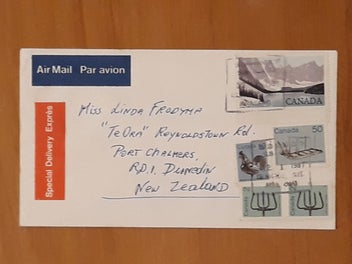 Air Mail Par avion
CANADA
Special Delivery Exprès
Miss Linda Frodyma
"TeOra" Reynoldstown Rd.
Port Chalmers,
R.D.1. Dunedin
New Zealand
Canada 50
1987